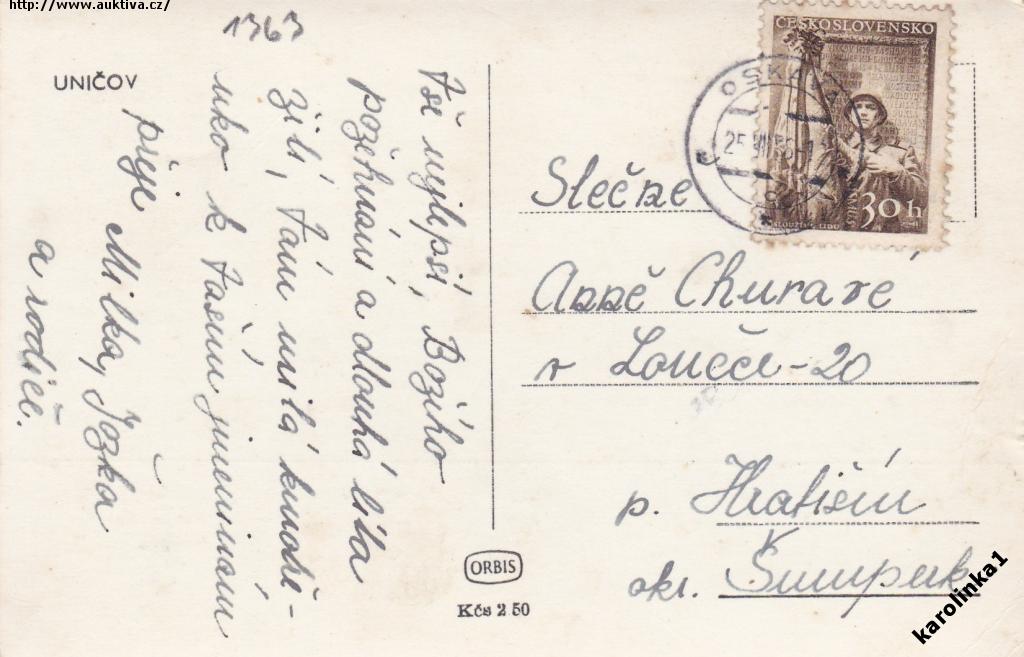 http://www.auktiva.cz/
1363
UNIČOV
Vše nejlepší, Božího
požehnání a dlouhá léta
žití, Vám milá kmoře-
nko k Vašim jmeninám
přeje Milka, Jožka
a rodiče.
ČESKOSLOVENSKO
OSKAVA
25. VII. 56
30 h
Slečne
Anně Churavé
v Loučce-20
p. Hratišín
okr. Šumperk
ORBIS
Kčs 2 50
karolinka1